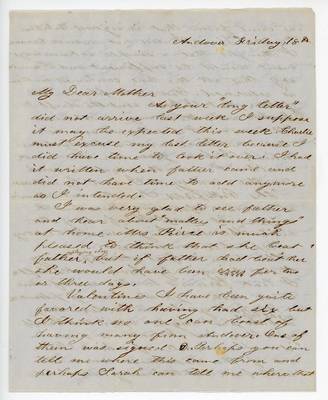 Andover Friday 18th
My Dear Mother
As your "long letter"
did not arrive last week I suppose
it may be expected this week Charlie
must excuse my last letter because I
did have time to look it over. I had
it written when father came and
did not have time to add anymore
as I intended.
I was very glad to see father
and hear about "matters and things"
at home. Mrs Peirce is much
pleased to think that she beat
father, but if father had beat her
she would have been for two
or three days.
Valentines I have been quite
favored with having had six but
I think no one can boast of
having many from Andover. One of
them was signed Perhaps you can
tell me where this came from and
perhaps Sarah can tell me where that